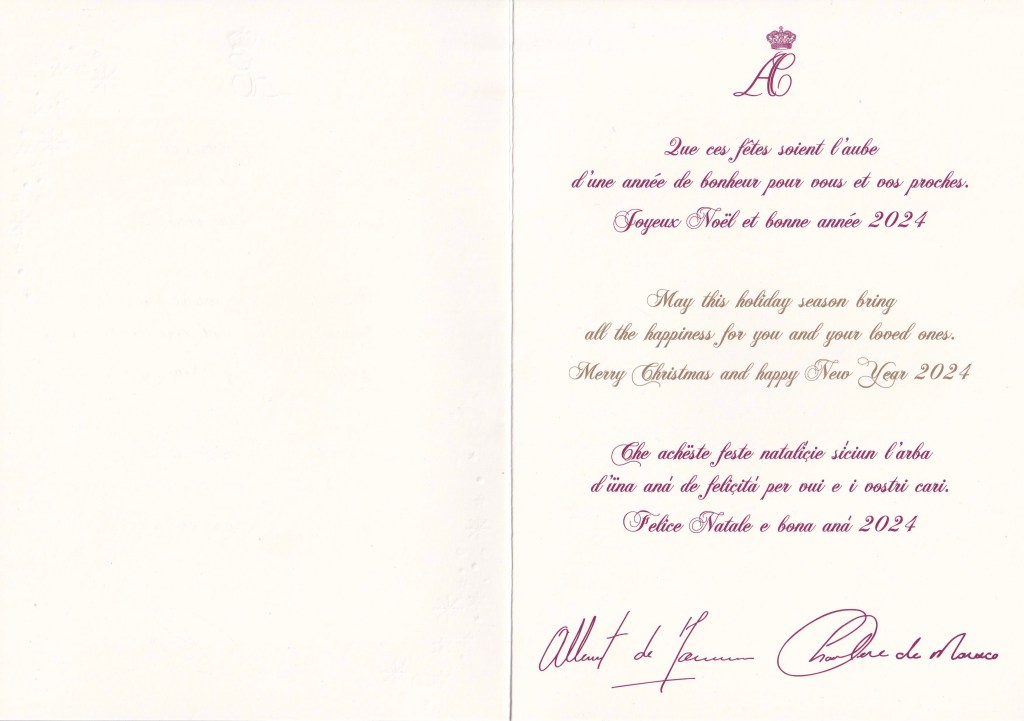 AC
Que ces fêtes soient l'aube
d'une année de bonheur pour vous et vos proches.
Joyeux Noël et bonne année 2024
May this holiday season bring
all the happiness for you and your loved ones.
Merry Christmas and happy New Year 2024
Che achëste feste nataliçie siciun l'arba
d'üna aná de feliçitá per vui e i vostri cari.
Felice Natale e bona aná 2024
Albert de Monaco Charlène de Monaco